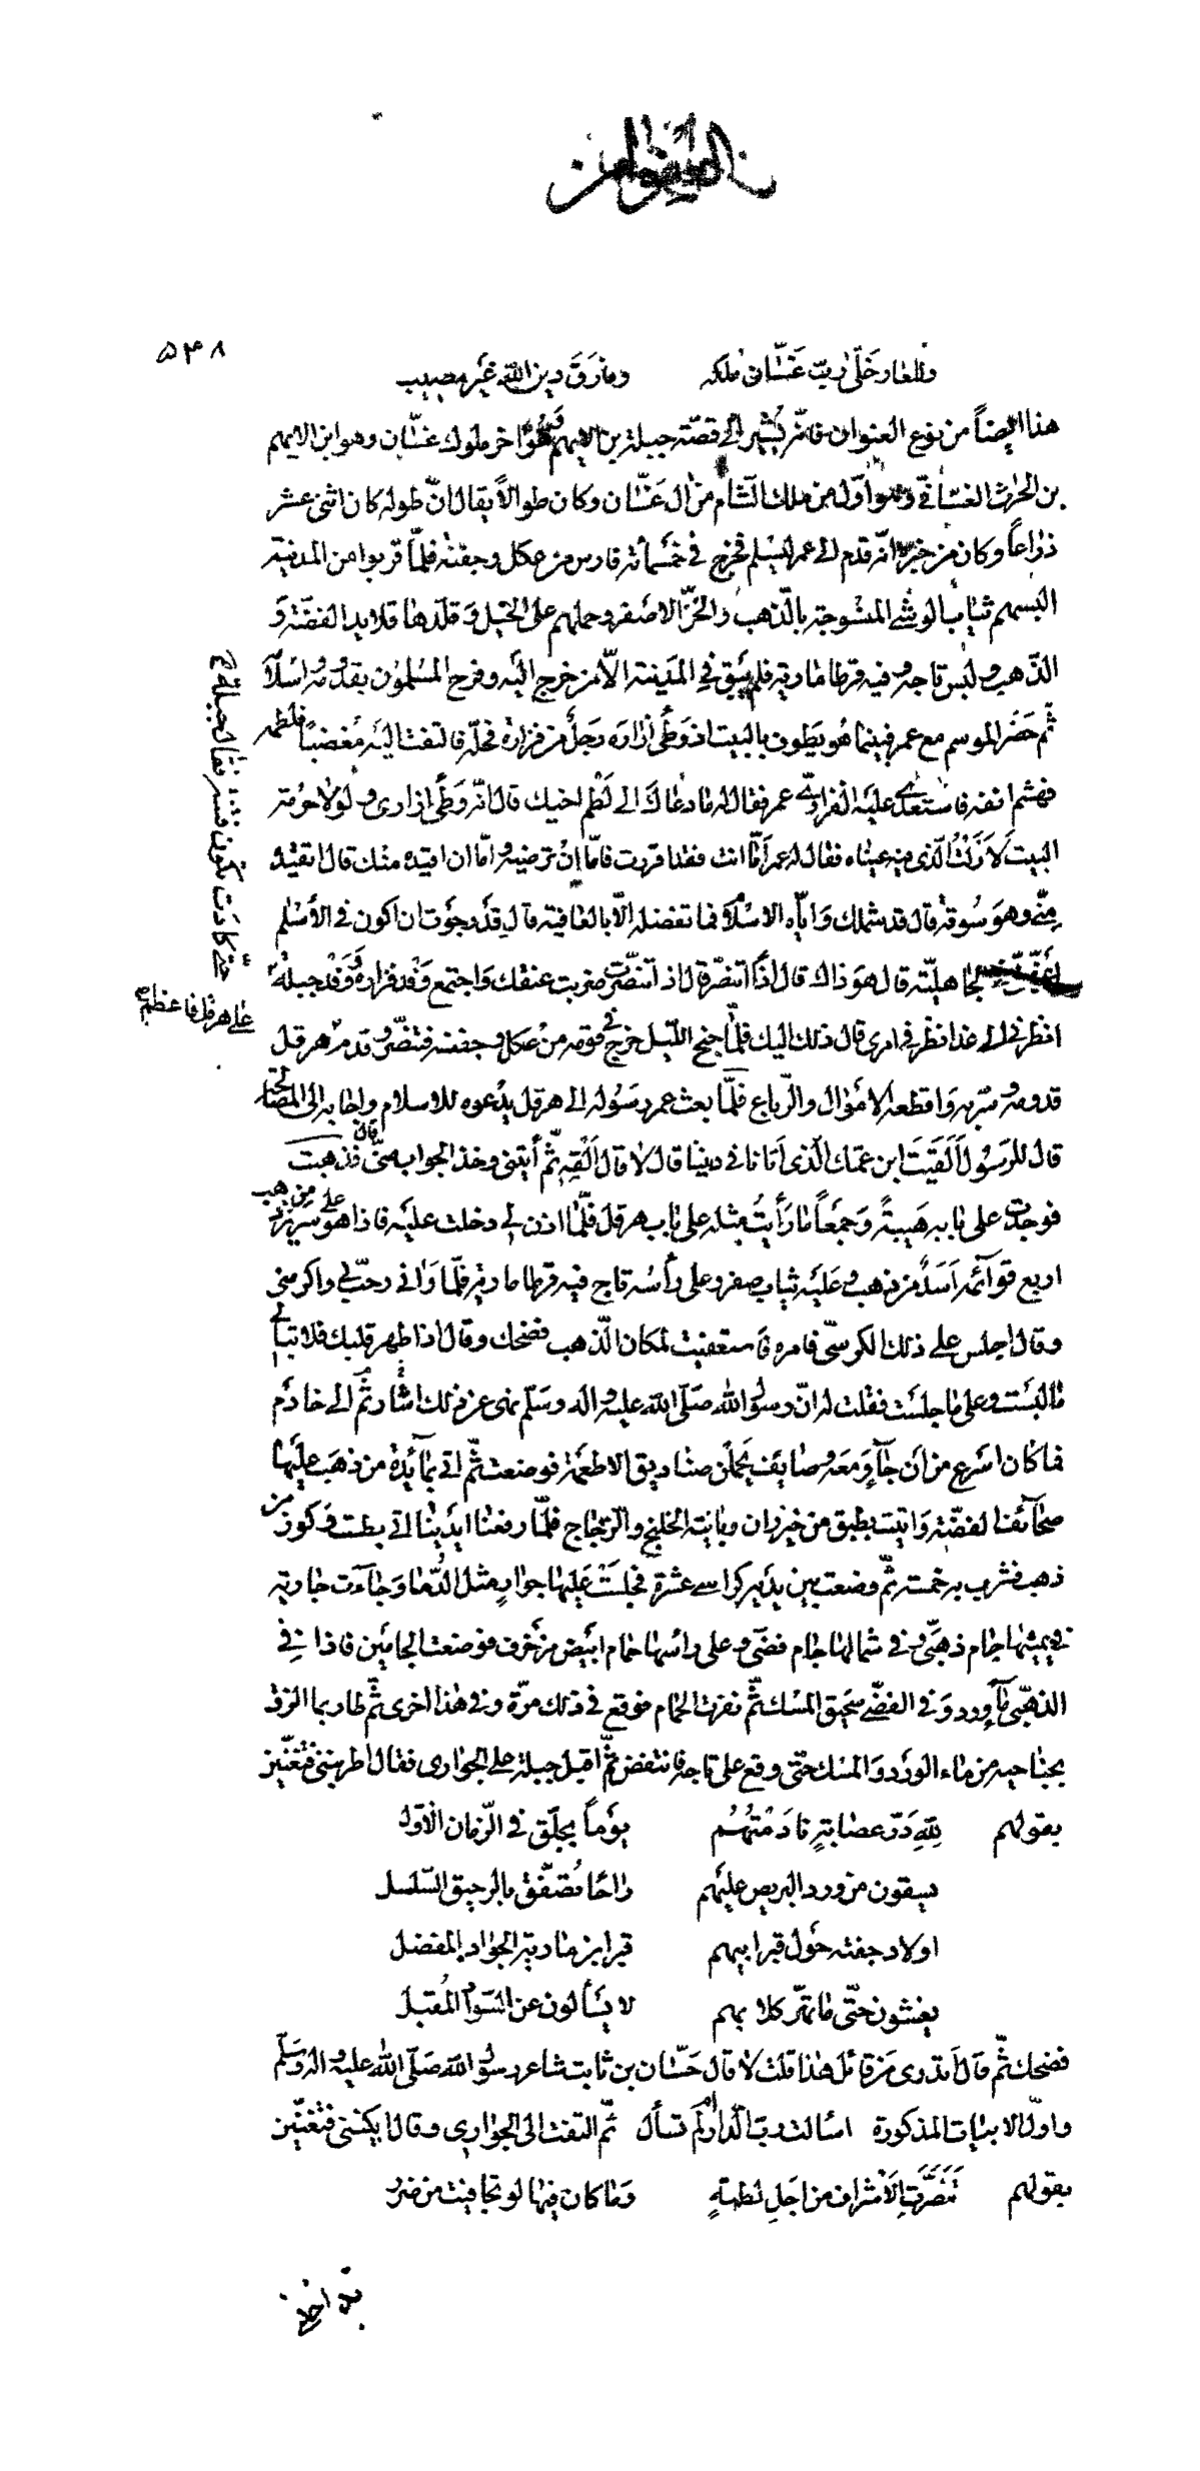 ۵۴۸
وللعار خلّى ربّ غسّان ملكه وفارق دين الله غير مصيب
هذا ايضاً من نوع العنوان فانّه يشير الى قصّة جبلة بن الايهم وهو اخر ملوك غسّان وهو ابن الايهم
بن الحارث الغسّانى وهو اوّل من ملك الشام من ال غسّان وكان طوالاً يقال انّ طوله كان اثنى عشر
ذراعاً وكان من خبره انّه قدم الى عمر ليسلم فخرج فى خمسمائة فارس من عكل وجفنة فلمّا قربوا من المدينة
البسهم ثياب الوشى المنسوجة بالذهب والخزّ الاصفر وحملهم على الخيل وقلّدها قلايد الفضّة و
الذهب ولبس تاجه وفيه قرطا مارية فلم يبق فى المدينة الّا من خرج اليه وفرح المسلمون بقدومه واسلامه
ثمّ حضر الموسم مع عمر فبينما هو يطوف بالبيت اذ وطئ ازاره رجل من فزارة فحلّه فالتفت اليه مغضباً فلطمه
فهشم انفه فاستعدى عليه الفزارى عمر فقال له ما دعاك الى لطم اخيك قال انّه وطئ ازارى ولولا حرمة
البيت لازلت الذى فيه عيناه فقال له عمر امّا انت فقد اقررت فامّا ان ترضيه وامّا ان اقيده منك قال اتقيده
منّى وهو سوقة قال قد شملك وايّاه الاسلام فما تفضله الّا بالعافية قال قد رجوت ان اكون فى الاسلام
اعزّ منّى فى الجاهليّة قال هو ذاك قال اذاً اتنصّر قال ان تنصّرت ضربت عنقك واجتمع وفد فزارة ووفد جبلة
حتّى كادت تكون فتنة فقال جبلة
انظرنى الى غد انظر فى امرى قال ذلك اليك فلمّا جنح الليل خرج فى قومه من عكل وجفنة فتنصّر وقدم هرقل
على هرقل فاعظم
قدومه وسرّ به واقطعه الاموال والرباع فلمّا بعث عمر رسوله الى هرقل يدعوه للاسلام واجابه الى المصالحة
قال للرسول ألقيت ابن عمّك الذى اتانا فى ديننا قال لا قال القه ثمّ أيتنى وخذ الجواب منّى قال فذهبت
فوجدت على بابه هيبة وجمعاً ما رأيت مثله على باب هرقل فلمّا اذن لى دخلت عليه فاذا هو على سرير من ذهب
اربع قوائمه اسد من ذهب وعليه ثياب صفر وعلى رأسه تاج فيه قرطا مارية فلمّا رآنى رحّب بى واكرمنى
وقال اجلس على ذلك الكرسّى فامره فاستعفيت لمكان الذهب فضحك وقال اذا طهر قلبك فلا تبالى
ما لبست وعلى ما جلست فقلت له انّ رسول الله صلّى الله عليه واله وسلّم نهى عن ذلك اشار ثمّ الى خادم
فما كان اسرع من ان جاء ومعه وصايف يحملن صناديق الاطعمة فوضعت ثمّ اتى بمائدة من ذهب عليها
صحائف الفضّة واتيت بطبق من خيزران وبانية الخلنج والزجاج فلمّا رفعنا ايدينا اتى بطست وكوز من
ذهب فشرب به خمسة ثمّ وضعت بين يديه كراسى عشرة فجلست عليها جوارٍ مثل الدّما وجاءت جارية
فى يمينها جام ذهبّى وفى شمالها جام فضّى وعلى رأسها حمام ابيض مزخرف فوضعت الجامين فاذا فى
الذهبّى ماء ورد وفى الفضّى سحيق المسك ثمّ نفرت الحمام فوقع فى ذلك مرّة وفى هذا اخرى ثمّ طار بما الزق
بجناحيه من ماء الورد والمسك حتّى وقع على تاجه فانتفض ثمّ اقبل جبلة على الجوارى فقال اطربننى فتغنّين
بقولهم لله درّ عصابة نادمتهم يوماً بجلّق فى الزمان الاوّل
يسقون من ورد البريص عليهم راحاً تصفّق بالرحيق السلسل
اولاد جفنة حول قبر ابيهم قبر ابن مارية الجواد المفضل
يغشون حتّى ما تهرّ كلابهم لا يسألون عن السواد المقبل
فضحك ثمّ قال أتدرى من قائل هذا قلت لا قال حسّان بن ثابت شاعر رسول الله صلّى الله عليه واله وسلّم
واوّل الابيات المذكورة اسالت ربّ الدار ام لم تسأل ثمّ التفت الى الجوارى وقال ابكيننى فتغنّين
بقولهم تنصّرت الاشراف من اجل لطمة وما كان فيها لو تجافيت من ضرر